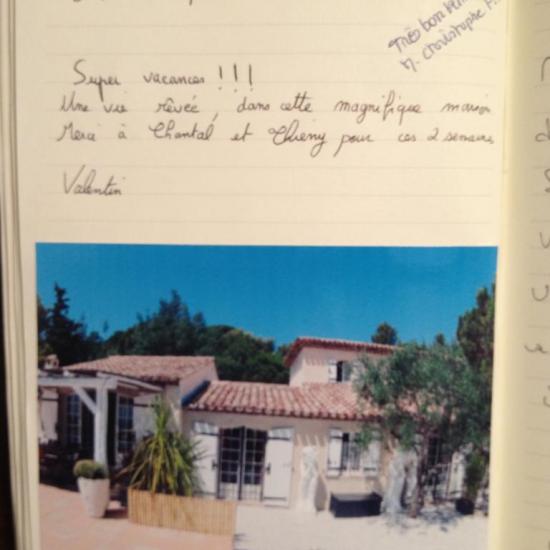 Très bon
M. Christophe
Super vacances !!!
Une vie rêvée, dans cette magnifique maison
Merci à Chantal et Thierry pour ces 2 semaines
Valentin